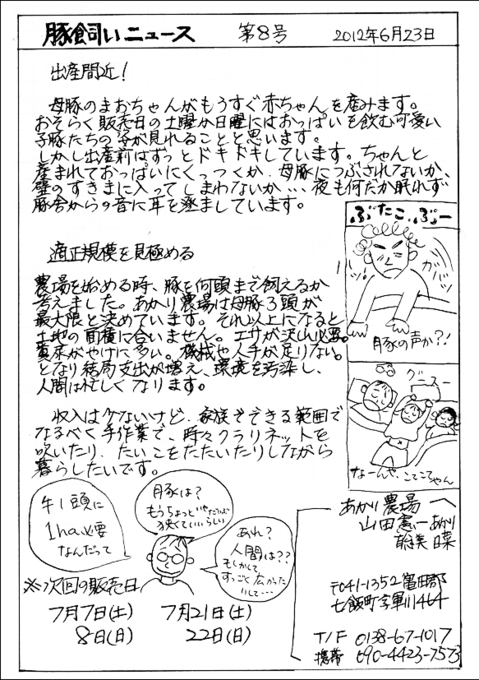 豚飼いニュース 第8号 2012年6月23日
出産間近!
母豚のまおちゃんがもうすぐ赤ちゃんを産みます。
おそらく販売日の土曜か日曜にはおっぱいを飲む可愛い
子豚たちの姿が見れることと思います。
しかし出産前はずっとドキドキしています。ちゃんと
産まれておっぱいにくっつくか、母豚につぶされないか、
壁のすきまに入ってしまわないか…、夜も何だか眠れず
豚舎からの音に耳を澄ましています。
適正規模を見極める
農場を始める時、豚を何頭まで飼えるか
考えました。あかり農場は母豚3頭が
最大限と決めています。それ以上になると
土地の面積に合いません。エサが沢山必要。
糞尿がやけに多い。機械や人手が足りない。
となり結局支出が増え、環境を汚染し、
人間は忙しくなります。
収入は少ないけど、家族でできる範囲で
なるべく手作業で、時々クラリネットを
吹いたり、たいこをたたいたりしながら
暮らしたいです。
ぶたこ、ぶー
ガバッ
豚の声か?!
グースー
なーんや、こてころちゃん
牛1頭に
1ha必要
なんだって
豚は?
もうちょっと
狭くていいらしい
あれ?
人間は??
もしかして
すっごく広かった
りして…
※次回の販売日
7月7日(土) 7月21日(土)
8日(日) 22日(日)
あかり農場
山田憲一 あかり
〒041-1352 亀田郡
七飯町字軍川464
T/F 0138-67-1017
携帯 090-4423-7573